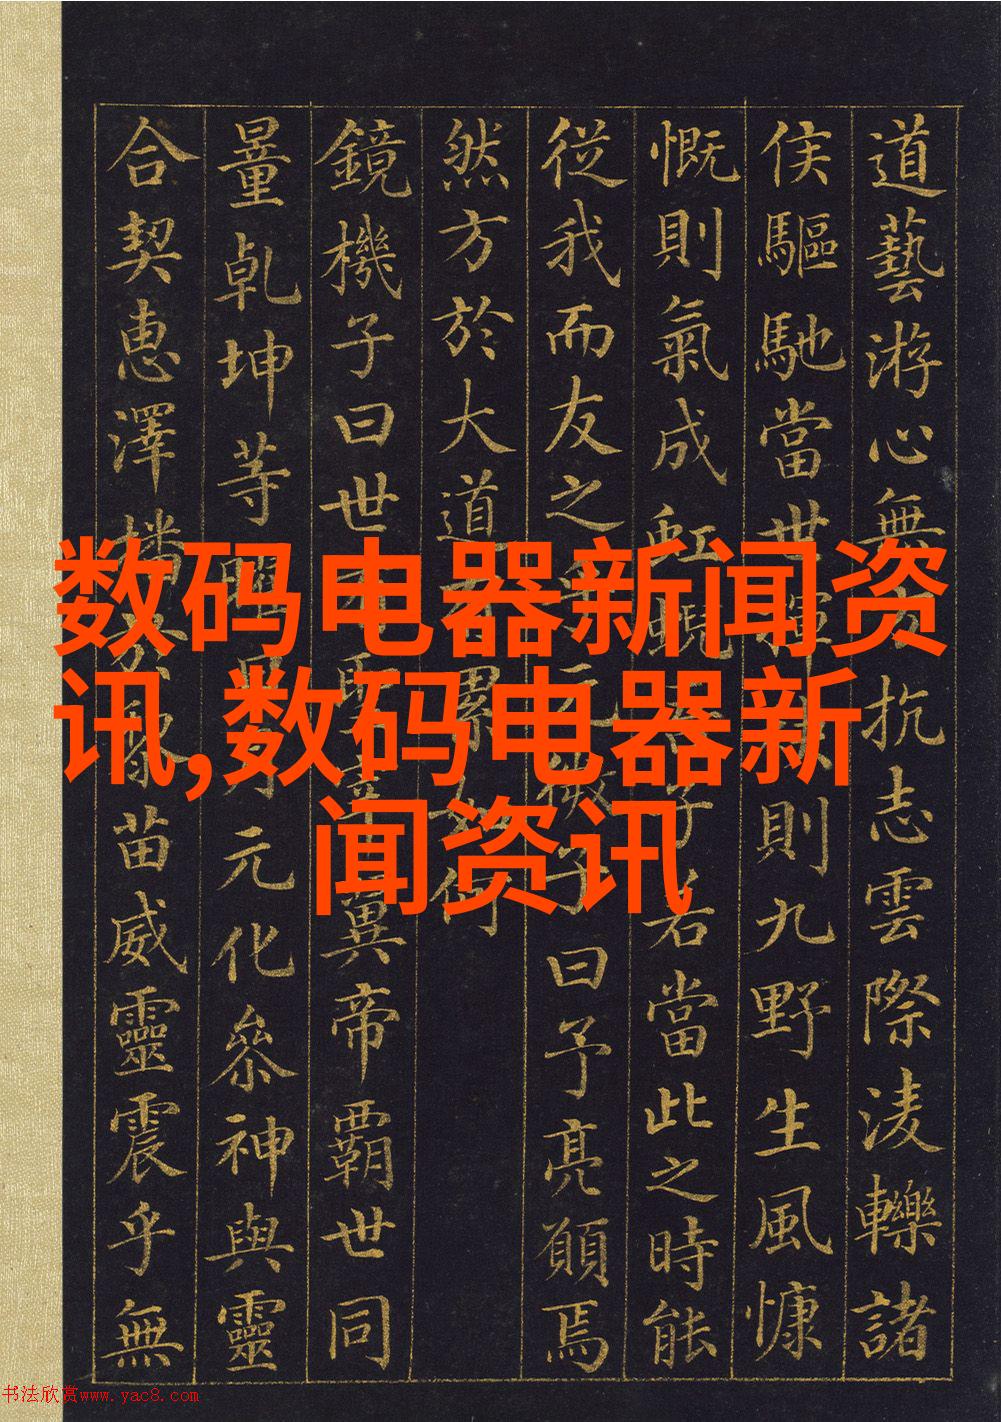 道藝游心無抗志雲際淩轢諸
侯驅馳當世則九野生風慷
慨則氣成虹蜺子若當此之時能
從我而友之微子曰予亮願焉
然方於大道累何
鏡機子曰世翼帝霸世同
量乾坤等月元化參神與靈
合契惠澤播苗威靈震乎無
数码电器新闻资
讯,数码电器新
闻资讯
书法欣赏www.yac8.com